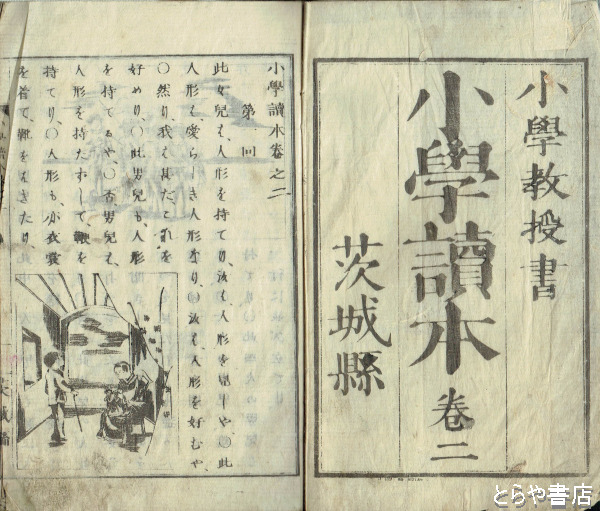 小學教授書
小學讀本 卷二
茨城縣
小學讀本卷之二
第一回
此女兒も、人形を持てり、汝も、人形を見しや〇此
人形も、愛らしき人形なり、〇汝も、人形を好むや、
〇然り、我も甚だこれを
好めり、〇此男兒も、人形
を持てるや、〇否男兒も、
人形を持たずして、鞭を
持てり、〇人形も、小衣裳
を着て、靴をはきたり、
とらや書店